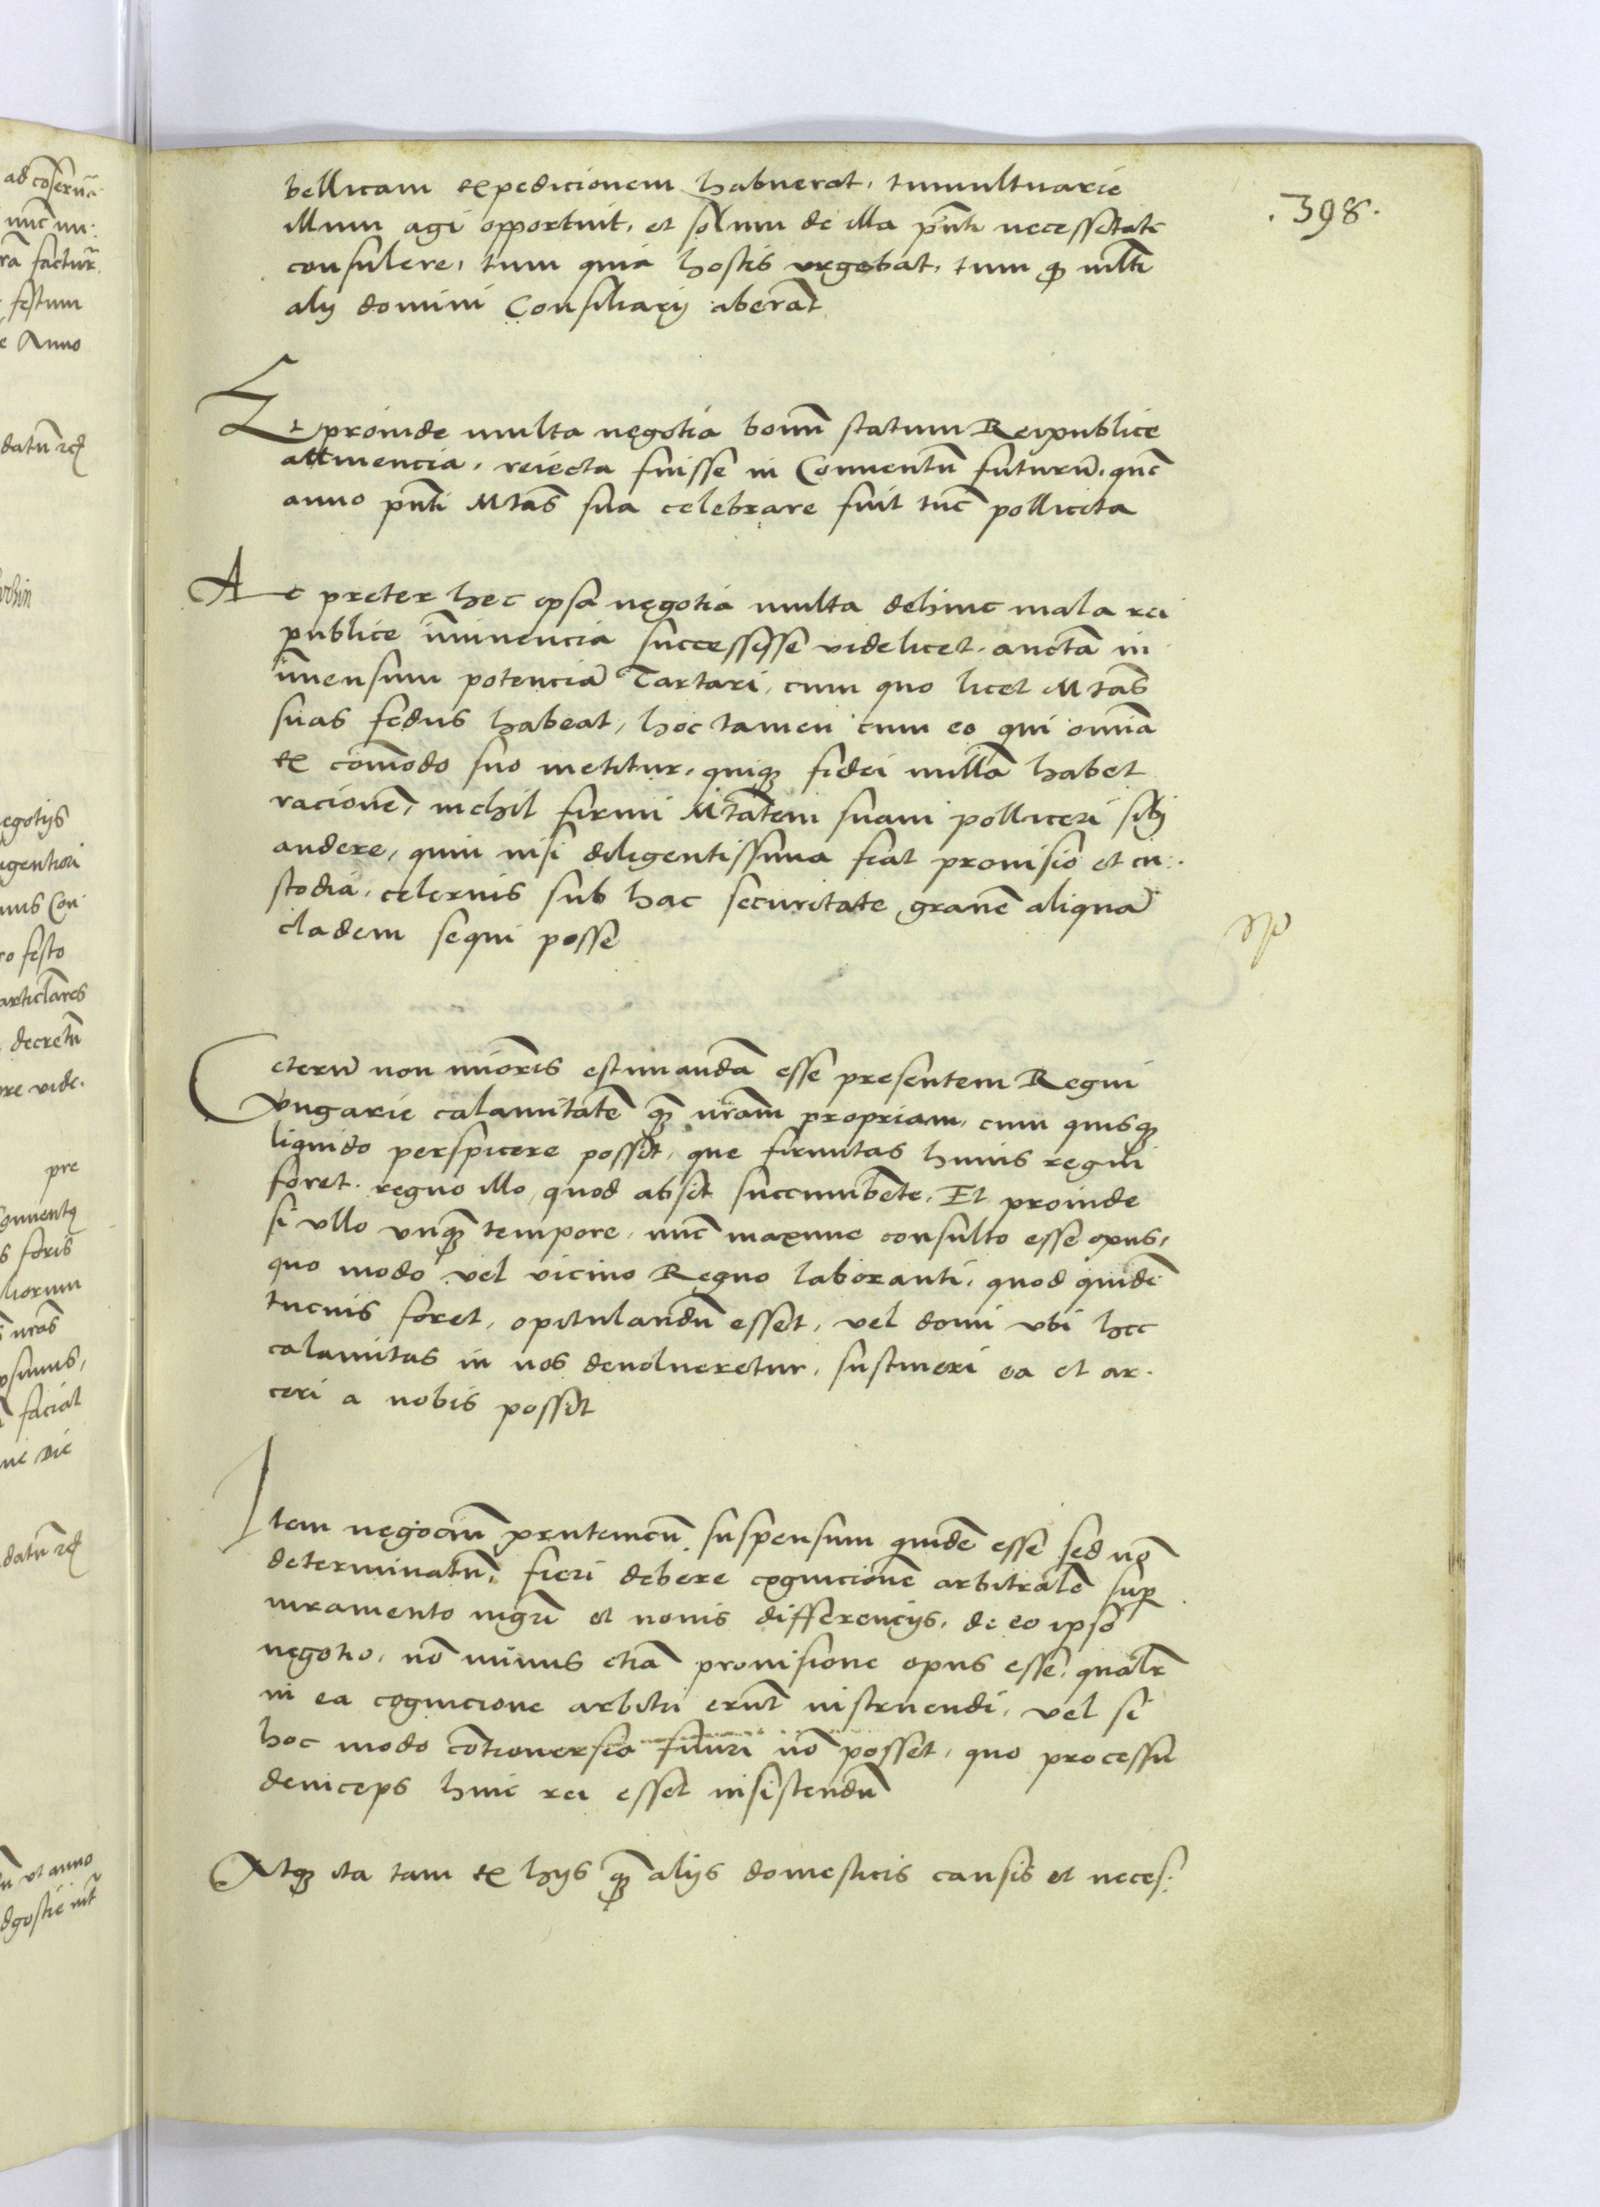 .398.
bellicam expedicionem habuerat, tumultuarie
illum agi opportuit, et solum de illa pñti necessitate
consulere, tum quia hostis urgebat, tum q̃ mlti
alij domini Consiliarij aberãt
Et proinde multa negotia bonũ statum Reipublice
attinencia, reiecta fuisse in Conventũ futurũ, quẽ
anno pñti Mtãs sua celebrare fuit tũc pollicita
Ac preter hec ipsa negotia multa dehinc mala rei
publice im̃inencia successisse videlicet, auctã in
im̃ensum potenciã Tartari, cum quo licet Mtãs
suas fedus habeat, hoc tamen cum eo qui om̃ia
ex com̃odo suo metitur, quiq; fidei nullã habet
racionẽ, nichil firmi Mtãtem suam polliceri sibi
audere, quin nisi diligentissima fiat provisio et cu:
stodia, celerius sub hac securitate gravẽ aliquã
cladem sequi posse
Ceterũ non miñoris estimandã esse presentem Regni
Vngarie calamitatẽ q̃ nrãm propriam, cum quisq;
liquido perspicere possit, que firmitas huius regni
foret, regno illo, quod absit succumbẽte, Et proinde
si vllo vnq̃ tempore, nũc maxime consulto esse opus,
quo modo vel vicino Regno laboranti, quod quidẽ
tucius foret, opitulandũ esset, vel domi vbi hec
calamitas in nos devolveretur, sustineri ea et ar.
ceri a nobis possit
Item negociũ prutenicũ suspensum quidẽ esse sed nõ
determinatũ, fieri debere cognicionẽ arbitralẽ sup
iuramento mgrĩ et novis differencijs, de eo ipso
negotio, nõ minus etiã provisione opus esse, qualr̃
in ea cognicione arbitri erũt instruendi, vel si
hoc modo cõtrouersia finiri nõ posset, quo processu
deinceps huic rei esset insistendũ
Atq; ita tam ex hijs q̃ alijs domesticis causis et neces: